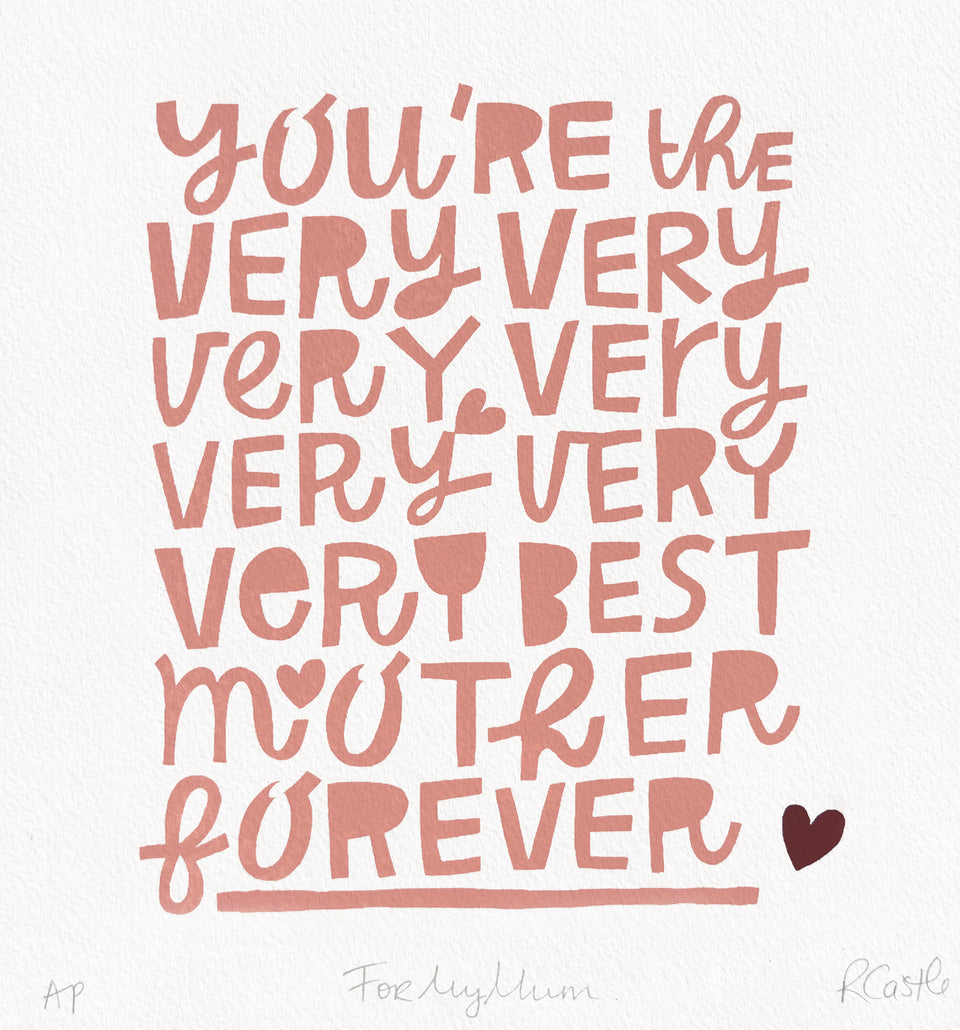 YOU'RE the
VERY VERY
VERY VERY
VERY VERY
VERY BEST
MOTHER
FOREVER
AP For My Mum RCastle